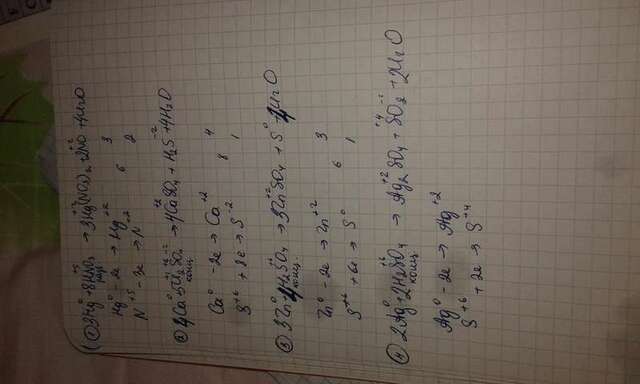 ① 3Hg⁰ + 8HN⁺⁵O₃ → 3Hg⁺²(NO₃)₂ + 2N⁺²O + 4H₂O
разб.
Hg⁰ - 2e → Hg⁺² 3
N⁺⁵ - 3e → N⁺² 6 2
② 4Ca⁰ + 5H₂S⁺⁶O₄ → 4Ca⁺²SO₄ + H₂S⁻² + 4H₂O
конц.
Ca⁰ - 2e → Ca⁺² 4
S⁺⁶ + 8e → S⁻² 8 1
③ 3Zn⁰ + 4H₂S⁺⁶O₄ → 3Zn⁺²SO₄ + S⁰ + 4H₂O
конц.
Zn⁰ - 2e → Zn⁺² 3
S⁺⁶ + 6e → S⁰ 6 1
④ 2Ag⁰ + 2H₂S⁺⁶O₄ → Ag₂⁺²SO₄ + S⁺⁴O₂⁻² + 2H₂O
конц
Ag⁰ - 2e → Ag⁺²
S⁺⁶ + 2e → S⁺⁴